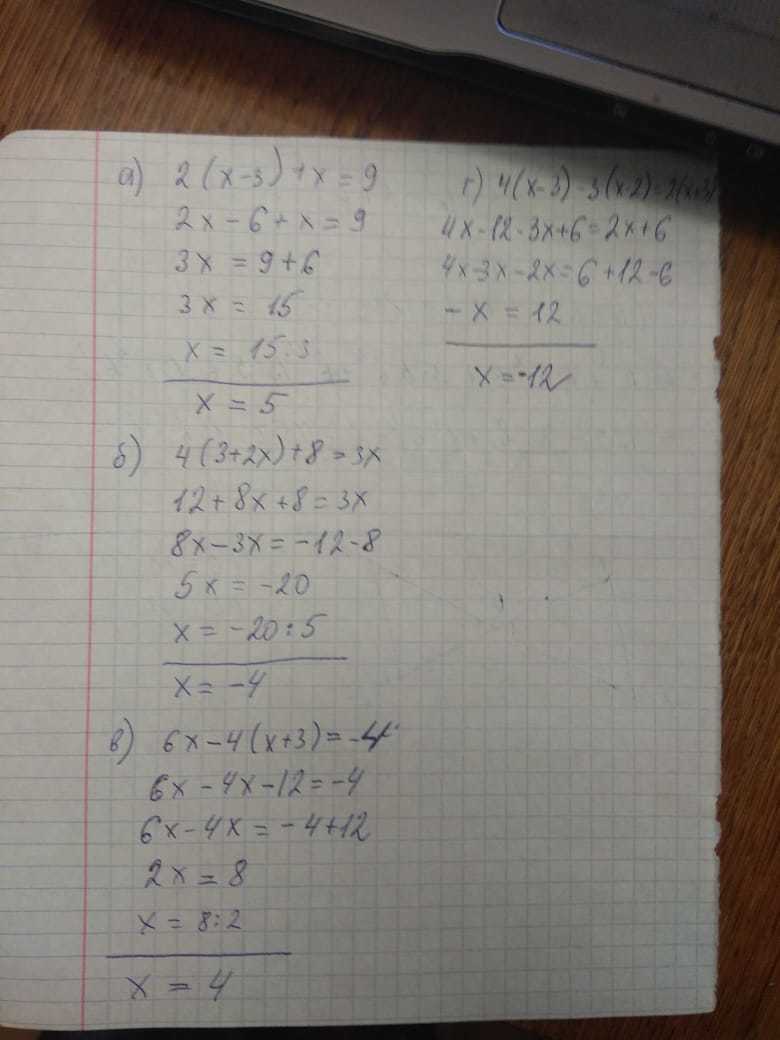 а) 2(x-3)+x=9
2x-6+x=9
3x=9+6
3x=15
x=15:3
x=5
б) 4(3+2x)+8=3x
12+8x+8=3x
8x-3x=-12-8
5x=-20
x=-20:5
x=-4
в) 6x-4(x+3)=-4
6x-4x-12=-4
6x-4x=-4+12
2x=8
x=8:2
x=4
г) 4(x-3)-3(x-2)=2(x+3)
4x-12-3x+6=2x+6
4x-3x-2x=6+12-6
-x=12
x=-12